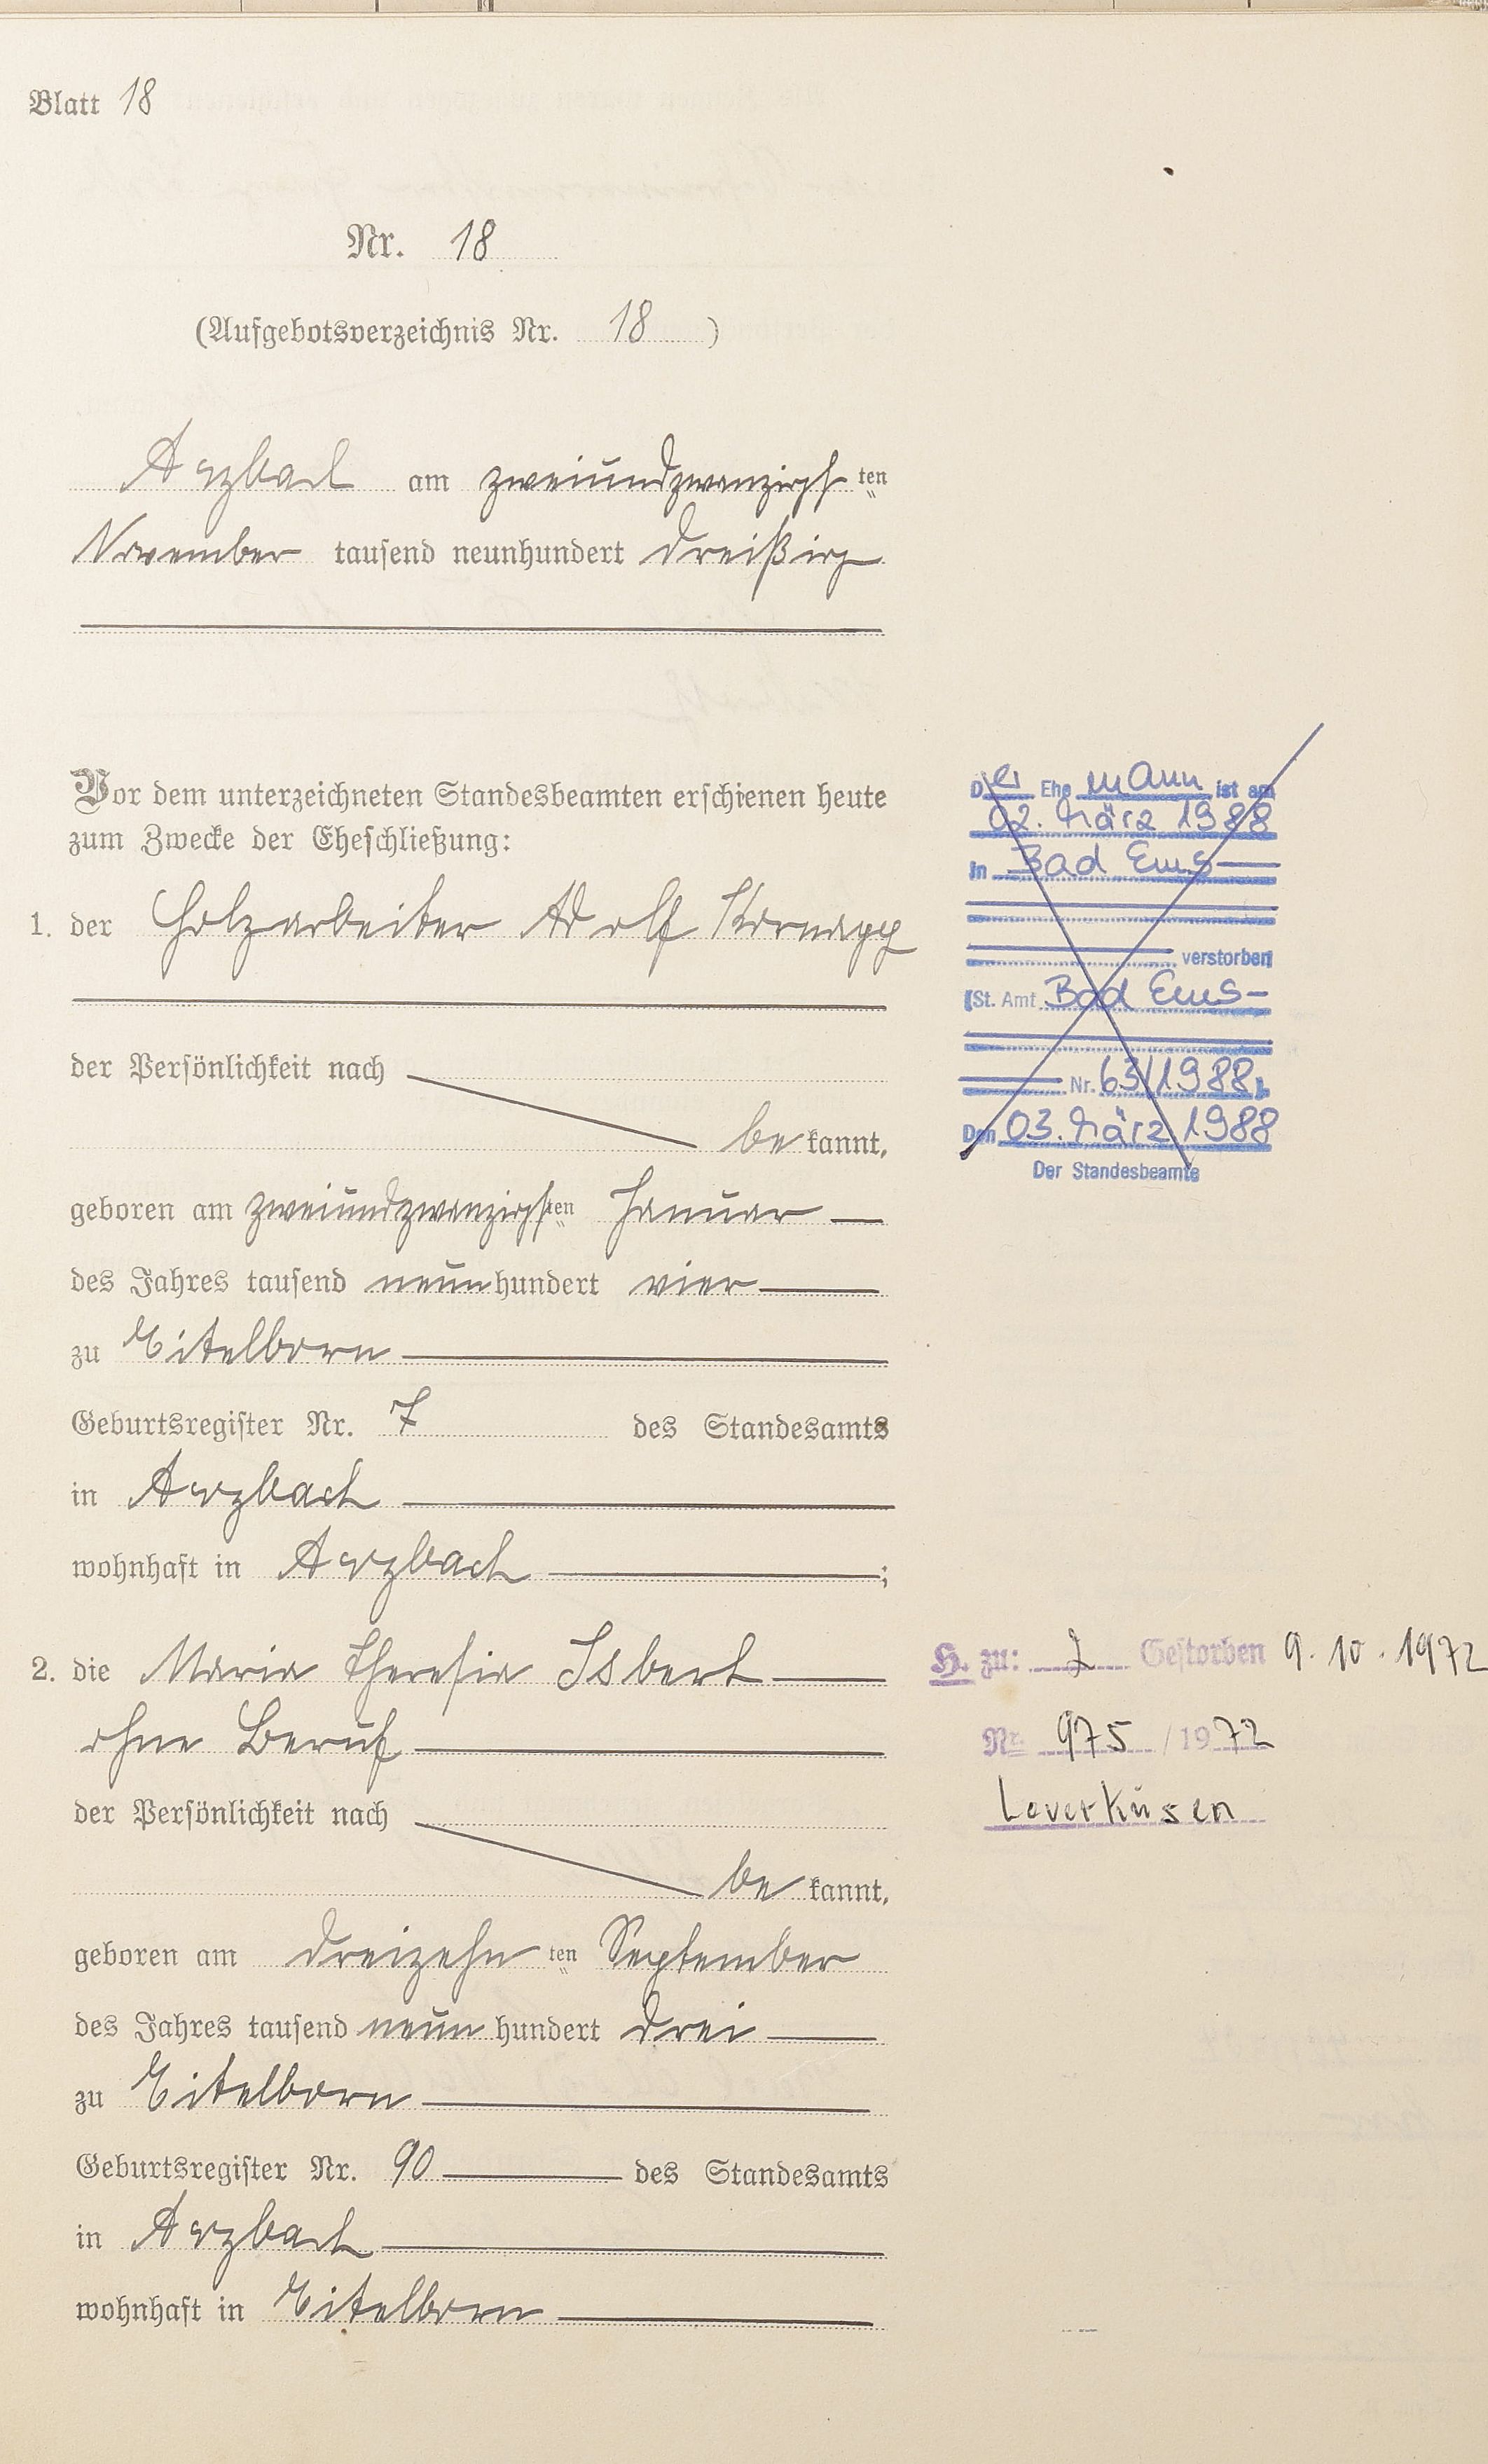 Blatt 18
Nr. 18
(Aufgebotsverzeichnis Nr. 18 )
Arzbach am zweiundzwanzigsten
November tausend neunhundert dreißig
Vor dem unterzeichneten Standesbeamten erschienen heute
zum Zwecke der Eheschließung:
1. der Holzarbeiter Adolf
der Persönlichkeit nach
be kannt,
geboren am zweiundzwanzigsten Januar
des Jahres tausend neunhundert vier
zu Eitelborn
Geburtsregister Nr. 7 des Standesamts
in Arzbach
wohnhaft in Arzbach ;
2. die Maria Theresia Isbert
ohne Beruf
der Persönlichkeit nach
be kannt,
geboren am dreizehn ten September
des Jahres tausend neun hundert drei
zu Eitelborn
Geburtsregister Nr. 90 des Standesamts
in Arzbach
wohnhaft in Eitelborn
Der Ehemann ist am
02. März 1988
in Bad Ems
verstorben
(St. Amt Bad Ems
Nr. 63/1988).
Den 03. März 1988
Der Standesbeamte
H. zu: 2 Gestorben 9.10.1972
Nr. 975 / 1972
Leverkusen